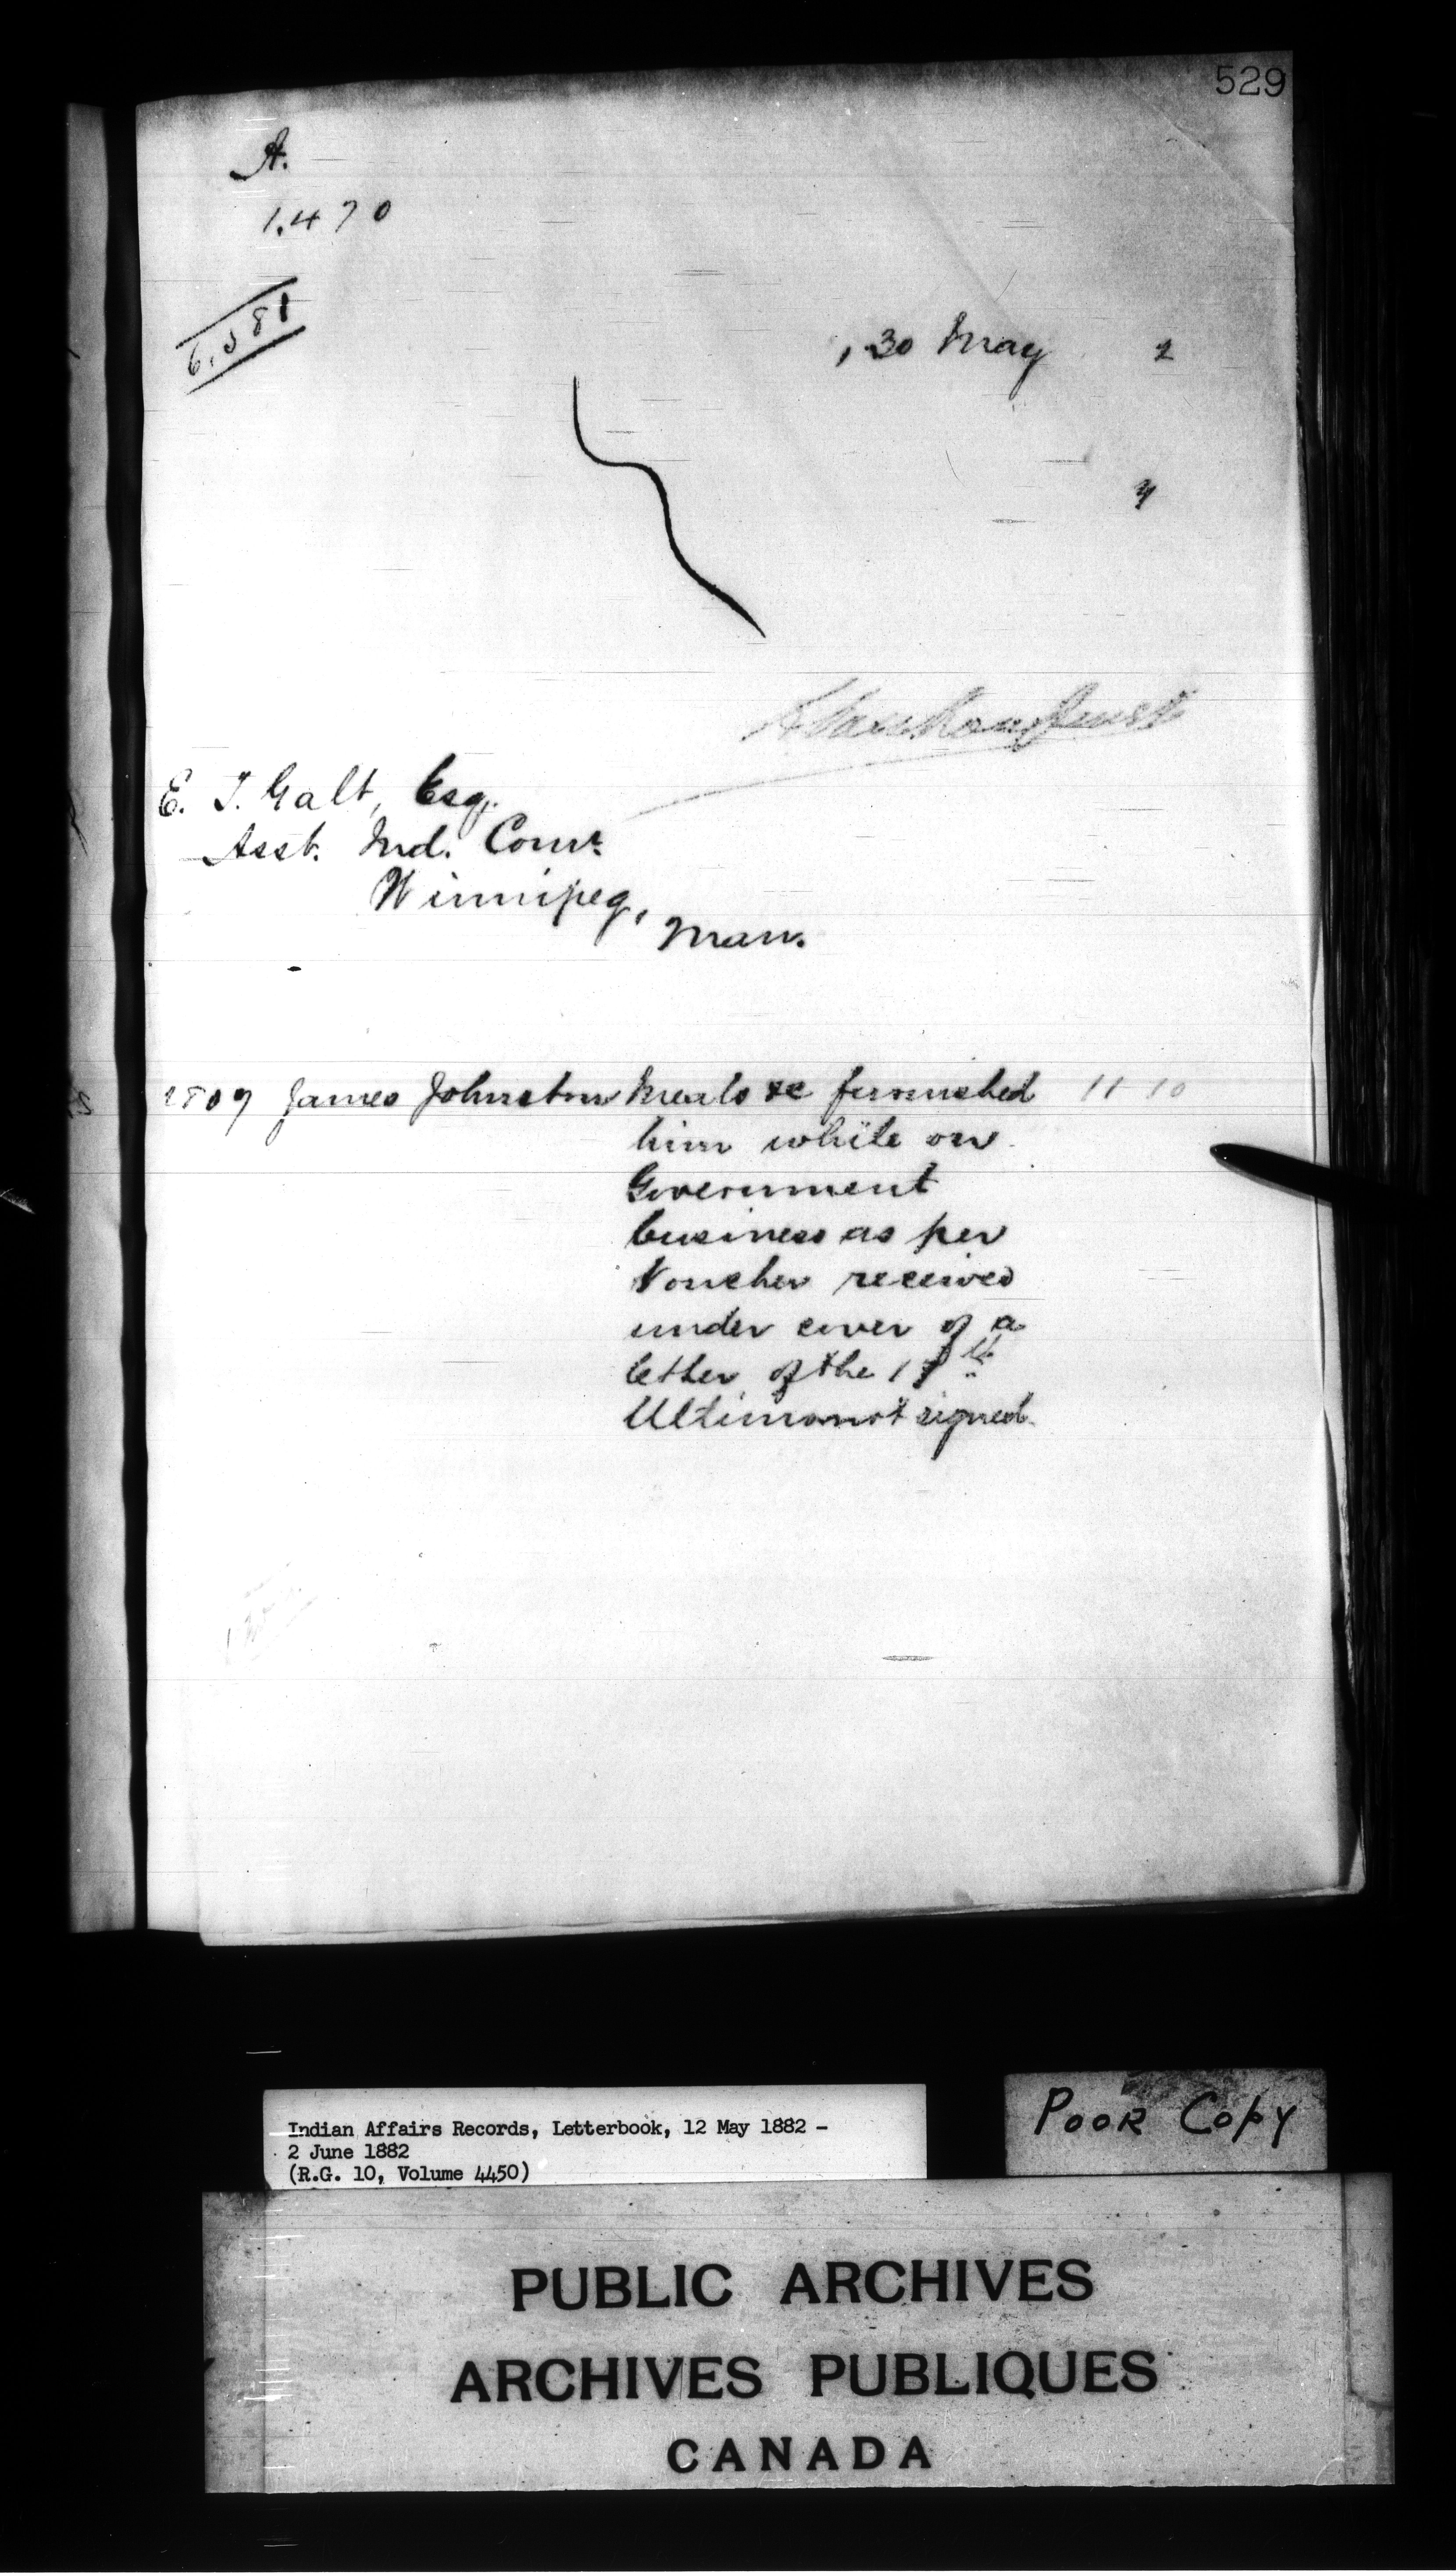 529
A.
1.470
30 May 2
4
E. T. Galt, Esq.
Asst. Ind. Comr.
Winnipeg,
Man.
1809 James Johnston Meals &c furnished 11 10
him while on
Government
business as per
Voucher received
under cover of a
letter of the
Ultimo not signed.
Indian Affairs Records, Letterbook, 12 May 1882 -
2 June 1882
(R.G. 10, Volume 4450)
POOR COPY
PUBLIC ARCHIVES
ARCHIVES PUBLIQUES
CANADA